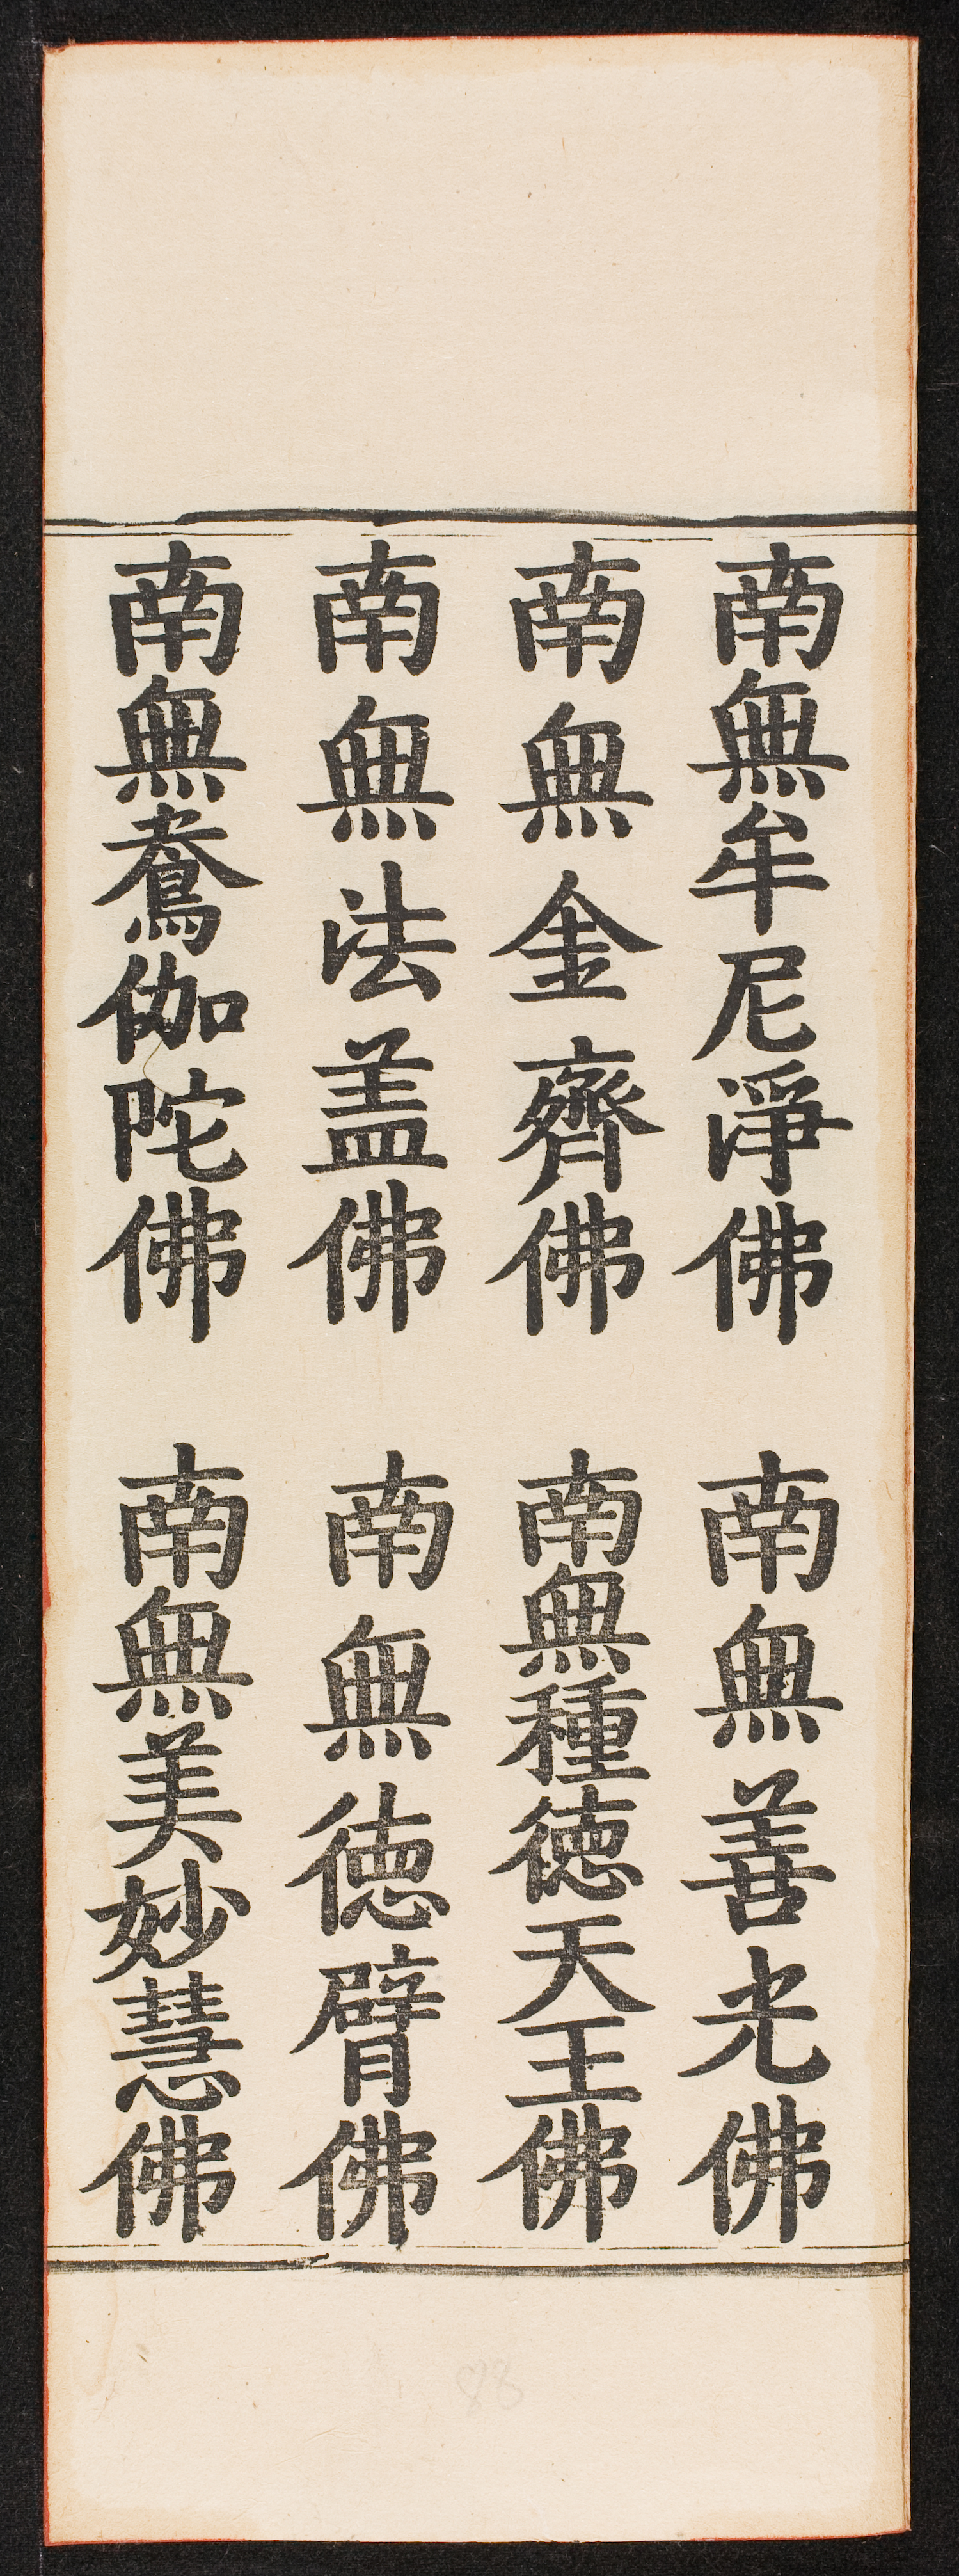 南無牟尼淨佛　南無善光佛
南無金齊佛　南無種德天王佛
南無法盖佛　南無德臂佛
南無鴦伽陀佛　南無美妙慧佛
88